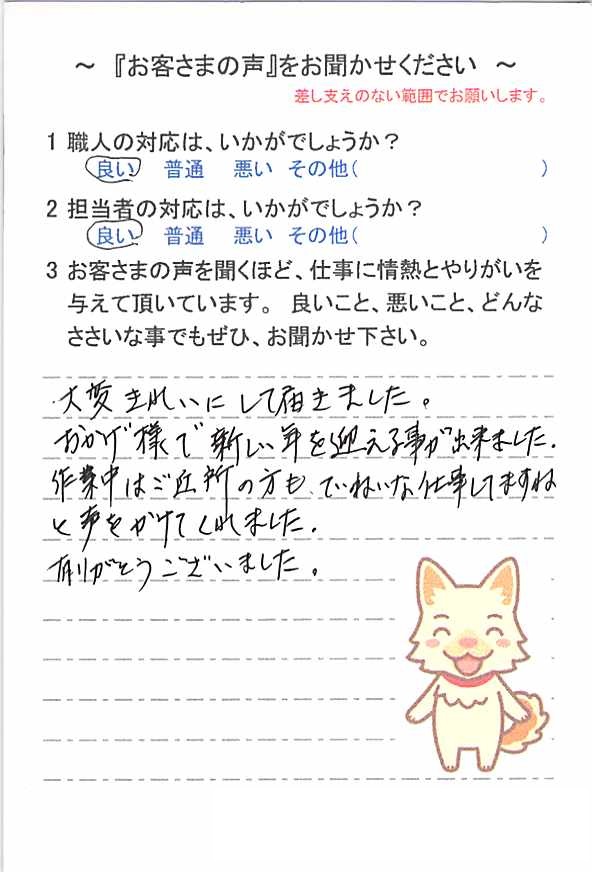 ～ 『お客さまの声』をお聞かせください ～
差し支えのない範囲でお願いします。
1 職人の対応は、いかがでしょうか？
良い 普通 悪い その他( )
2 担当者の対応は、いかがでしょうか？
良い 普通 悪い その他( )
3 お客さまの声を聞くほど、仕事に情熱とやりがいを
与えて頂いています。 良いこと、悪いこと、どんな
ささいな事でもぜひ、お聞かせ下さい。
大変きれいにして届きました。
おかげ様で新しい年を迎える事が出来ました.
作業中はご近所の方も、ていねいな仕事してますね
と声をかけてくれました.
有りがとうございました。